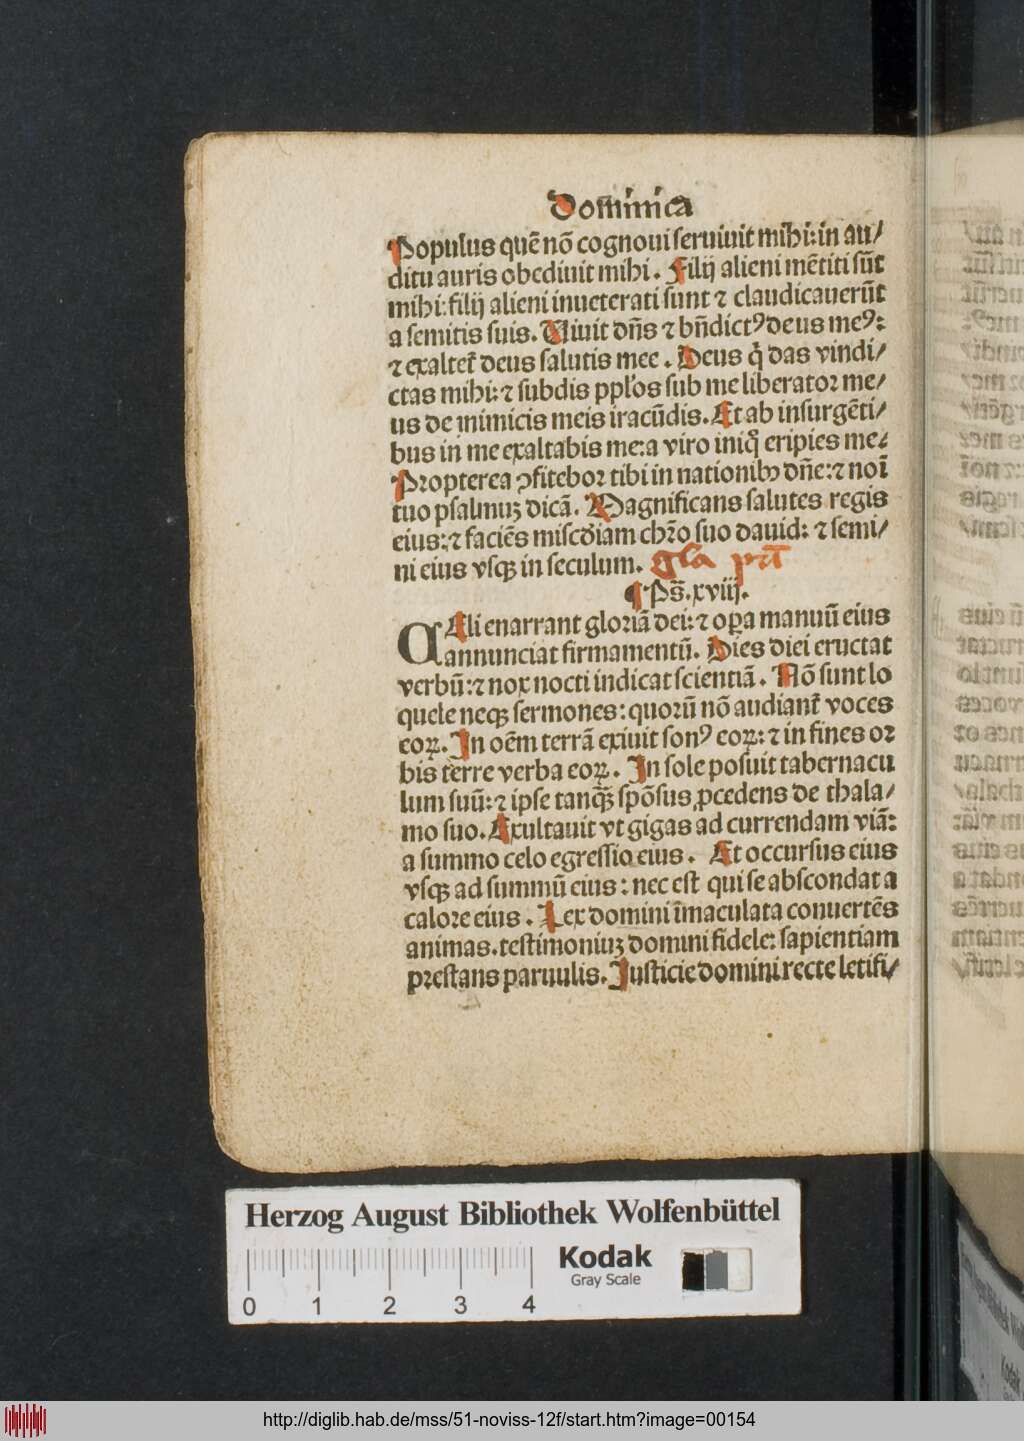 Dominica
Populus quē nō cognoui seruiuit mihi: in au/
ditu auris obediuit mihi. Filij alieni mētiti sūt
mihi: filij alieni inueterati sunt ⁊ claudicauerūt
a semitis suis. Uiuit dn̄s ⁊ bn̄dictꝰ deus meꝰ:
⁊ exaltet᷑ deus salutis mee. Deus q̇ das vindi/
ctas mihi: ⁊ subdis ppl̓os sub me liberator me/
us de inimicis meis iracūdis. Et ab insurgēti/
bus in me exaltabis me: a viro iniq̊ eripies me.
Propterea ꝯfitebor tibi in nationibꝫ dn̄e: ⁊ noī
tuo psalmuꝫ dicā. Magnificans salutes regis
eius: ⁊ faciēs misc̄diam chr̄o suo dauid: ⁊ semi/
ni eius vsqꝫ in seculum. gl̄a pr̄i
¶ Ps̄. xviij.
CEli enarrant gloriā dei: ⁊ oꝑa manuū eius
annunciat firmamentū. Dies diei eructat
verbū: ⁊ nox nocti indicat scientiā. Nō sunt lo
quele neqꝫ sermones: quorū nō audiant᷑ voces
eoꝝ. In oēm terrā exiuit sonꝰ eoꝝ: ⁊ in fines or
bis terre verba eoꝝ. In sole posuit tabernacu
lum suū: ⁊ ipse tanqꝫ̄ spōsus ꝓcedens de thala/
mo suo. Exultauit vt gigas ad currendam viā:
a summo celo egressio eius. Et occursus eius
vsqꝫ ad summū eius: nec est qui se abscondat a
calore eius. Lex domini īmaculata conuertēs
animas. testimoniuꝫ domini fidele: sapientiam
prestans paruulis. Justicie domini recte letifi/
Herzog August Bibliothek Wolfenbüttel
Kodak
Gray Scale
0 1 2 3 4
http://diglib.hab.de/mss/51-noviss-12f/start.htm?image=00154